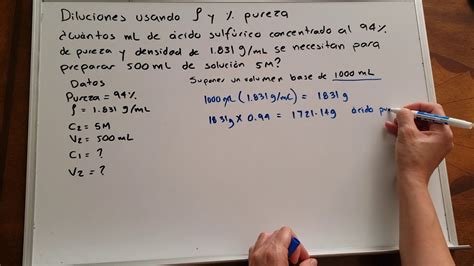 Diluciones usando ρ y % pureza
¿Cuántos mL de ácido sulfúrico concentrado al 94%
de pureza y densidad de 1.831 g/mL se necesitan para
preparar 500 mL de solución 5M?
Datos
Pureza = 94%
ρ = 1.831 g/mL
C₂ = 5M
V₂ = 500 mL
C₁ = ?
V₂ = ?
Suponer un volumen base de 1000 mL
1000 mL (1.831 g/mL) = 1831 g
1831g x 0.94 = 1721.14g ácido pu